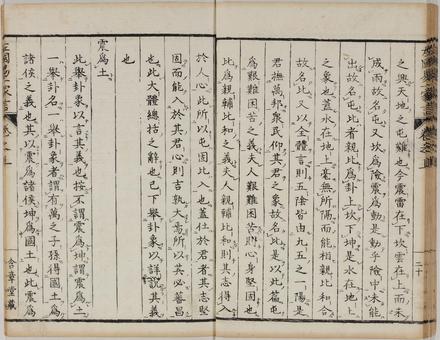 之與天地之屯難也今震雷在下坎雲在上而未
成雨故名屯又坎爲險震爲動是動乎險中未能
出故名屯也比者親比爲卦上坎下坤是水在地上
之象也蓋水在地上毫無所隔而能相親比和合
故名比又以全體言則五陰皆由九五之一陽是
君撫萬邦衆民仰其君之象故名比是以此篇屯
爲艱難困苦之義夫人艱難困苦則心身堅固也
比爲親輔比和之義夫人親輔比和則其志得入
二十
於人心此所以屯固比入也蓋仕於君者其志堅
固而能入於其君心則吉孰大焉所以其必蕃昌
也此大體總括之辭也已下舉卦象以詳說其義
也
震爲土
此舉卦象以言其義也按不謂震爲坤謂震爲土
一舉卦名一舉卦象者謂有萬之子孫得國土爲
諸侯之義也其以震爲諸侯坤爲國土也此震爲
左國易一家言 卷之上
含章堂藏